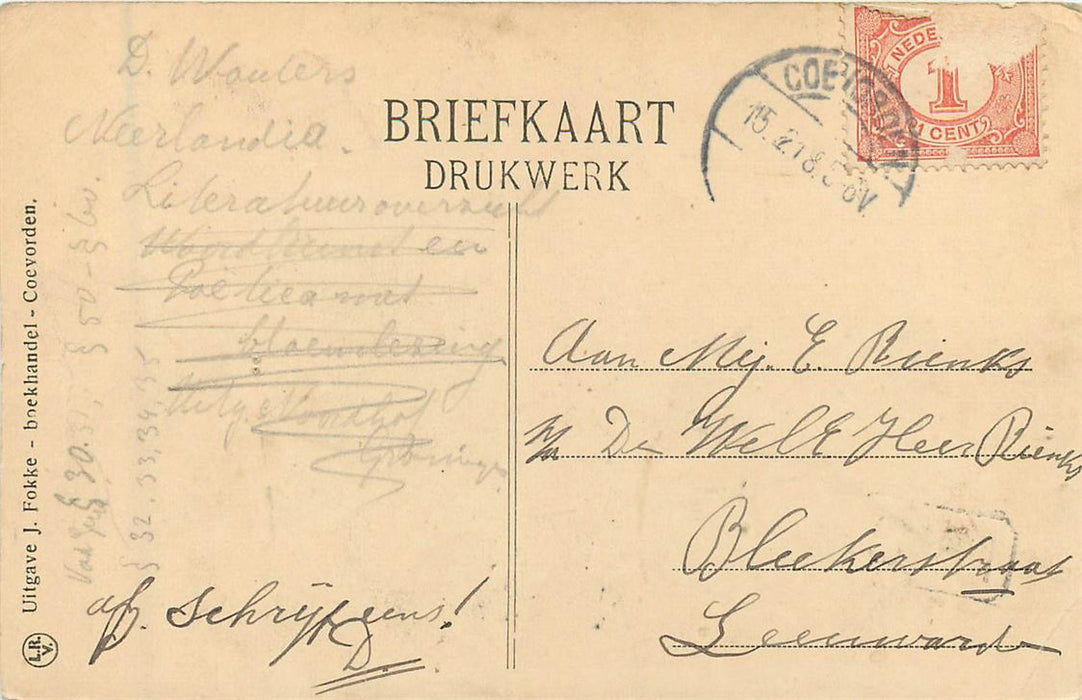 D. Wouters
Neerlandia.
Literatuuroverzicht
Woordkunst en
Poëtica met
bloemlezing
Uitg. Noordhof
Groningen
§ 30.31, § 50-§ 60.
§ 32.33,34,35
afz. Schrijf eens!
D.
Uitgave J. Fokke - boekhandel - Coevorden.
L.R.
V.
BRIEFKAART
DRUKWERK
COEVORDEN
15.2
NEDE
1
1 CENT
Aan Mej. E. Rienks
p/a De Wel E Heer Rienks
Bleekerstraat
Leeuward